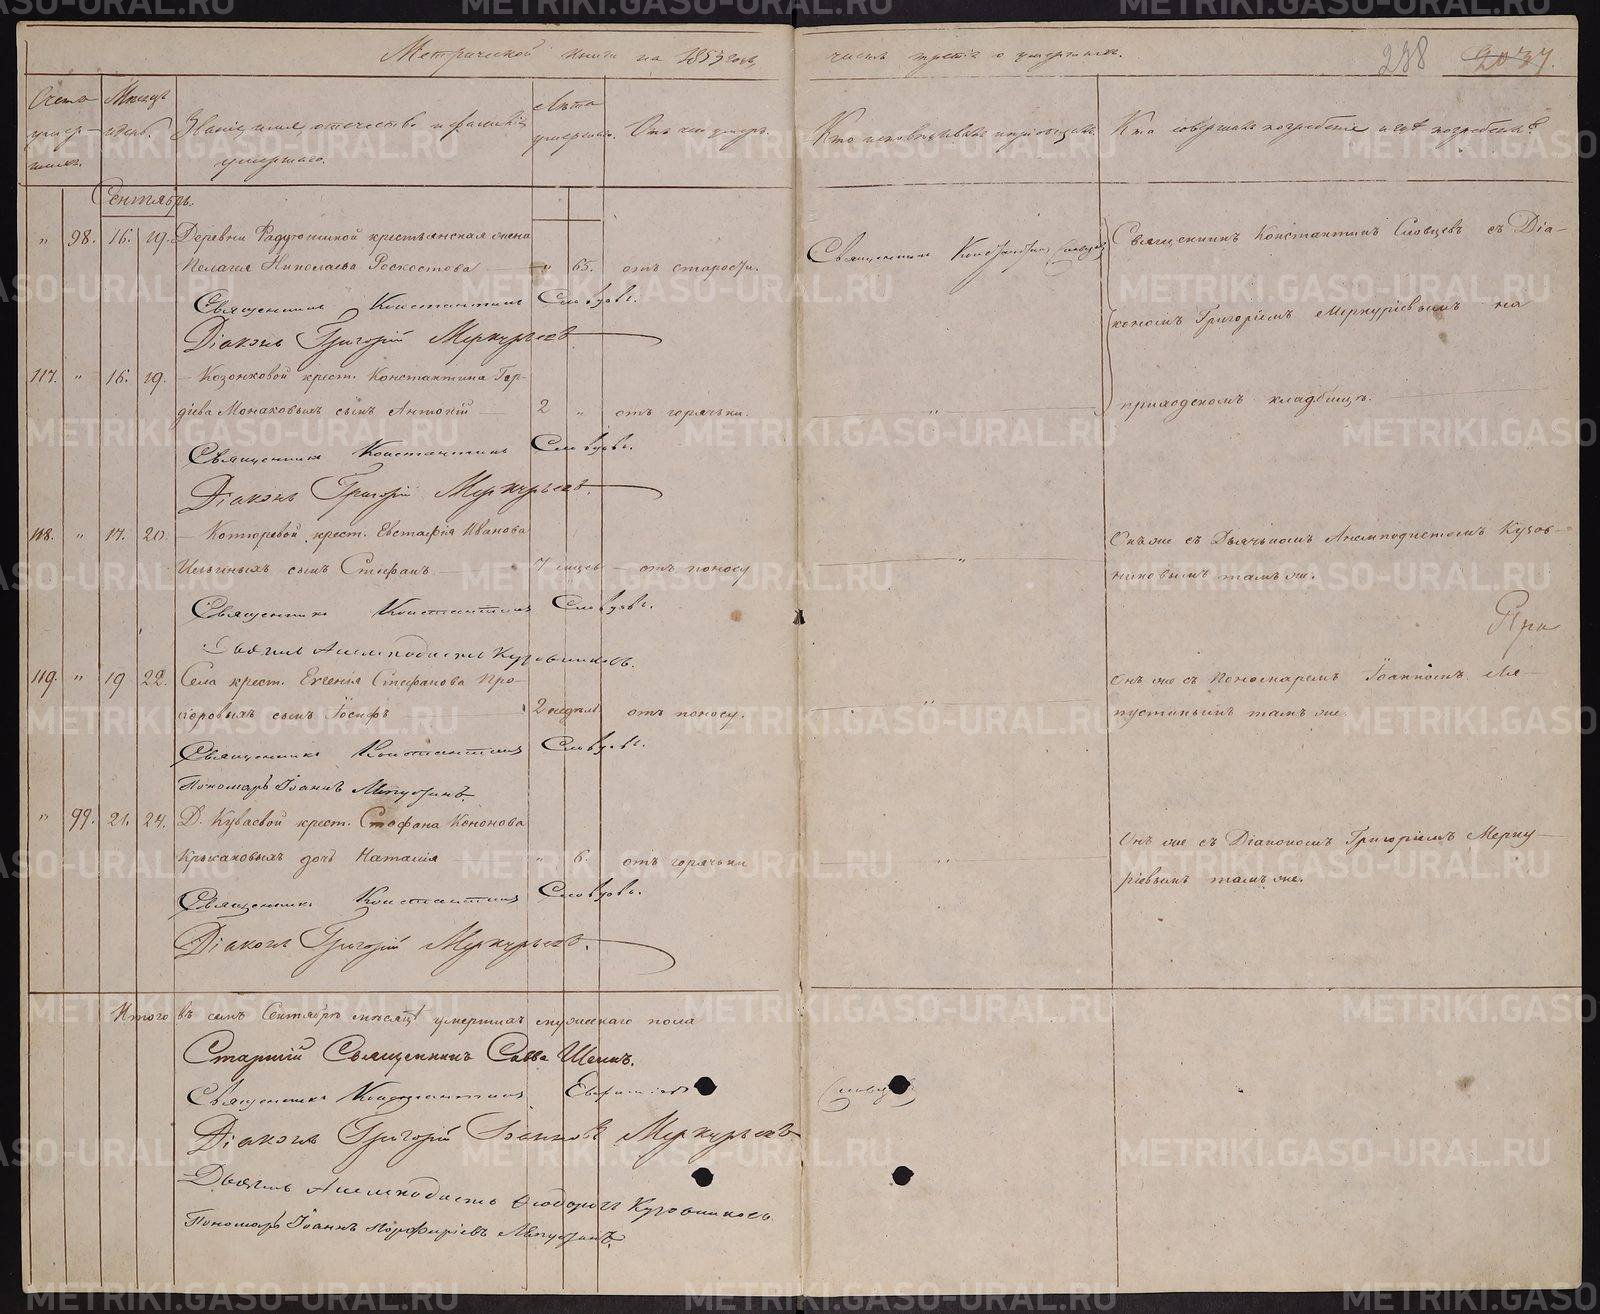 Метрической книги на 1853 годъ,
часть третія о умершихъ.
238
2037.
Счетъ умер-
шихъ.
Мѣсяцъ
и день.
Званіе, имя, отечество и фамилія
умершаго.
Лѣта
умершаго.
Отъ чего умеръ.
Кто исповѣдывалъ и пріобщалъ.
Кто совершалъ погребеніе и гдѣ погребены?
Сентябрь.
" 98. 16. 19. Деревни крестьянская жена
Пелагея Николаева " 65. отъ старости.
Священникъ Константинъ Словцовъ
Священникъ Константинъ Словцовъ съ Діа-
кономъ Григоріемъ Меркуріевымъ на
приходскомъ кладбищѣ.
Священникъ Константинъ Словцовъ.
Діаконъ Григорій Меркурьевъ
117. " 16. 19. — Козонковой крест. Константина Гор-
дѣева Монаковыхъ сынъ Антоній 2 " отъ горячки. "
Священникъ Константинъ Словцовъ.
Діаконъ Григорій Меркурьевъ.
118. " 17. 20. — крест. Евстафія Иванова
Ильиныхъ сынъ Стефанъ 7 мцевъ — отъ поносу "
Онъ же съ Дьячкомъ Анемподистомъ Кузов-
никовымъ тамъ же.
Священникъ Константинъ Словцовъ.
Дьячекъ Анемподистъ Кузовниковъ.
119. " 19 22. Села крест. Евгенія Стефанова Про-
норовыхъ сынъ Іосифъ 2 недѣли отъ поносу. "
Онъ же съ Пономаремъ Іоанномъ Ля-
пустинымъ тамъ же.
Священникъ Константинъ Словцовъ.
Пономарь Іоаннъ Ляпустинъ.
" 99. 21. 24. Д. Куваевой крест. Стефана Кононова
дочь Наталія " 6. отъ горячки "
Онъ же съ Діакономъ Григоріемъ Мерку-
ріевымъ тамъ же.
Священникъ Константинъ Словцовъ.
Діаконъ Григорій Меркурьевъ.
Итого въ семъ Сентябрѣ мѣсяцѣ умершихъ мужескаго пола
Старшій Священникъ Савва
Священникъ Константинъ Словцовъ
Діаконъ Григорій Іоанновъ Меркурьевъ
Дьячекъ Анемподистъ Ѳеодоровъ Кузовниковъ
Пономарь Іоаннъ Порфиріевъ Ляпустинъ.
METRIKI.GASO-URAL.RU